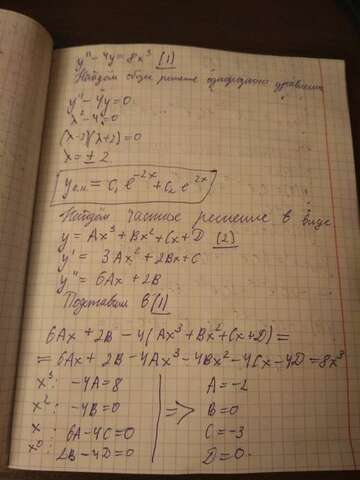 y'' - 4y = 8x³ (1)
Найдём общее решение однородного уравнения
y'' - 4y = 0
λ² - 4 = 0
(λ-2)(λ+2) = 0
λ = ± 2
yо.н = C₁ e^(-2x) + C₂ e^(2x)
Найдём частное решение в виде
y = Ax³ + Bx² + Cx + D (2)
y' = 3Ax² + 2Bx + C
y'' = 6Ax + 2B
Подставим в (1)
6Ax + 2B - 4(Ax³ + Bx² + Cx + D) =
= 6Ax + 2B - 4Ax³ - 4Bx² - 4Cx - 4D = 8x³
x³: -4A = 8 A = -2
x²: -4B = 0 => B = 0
x: 6A - 4C = 0 C = -3
x⁰: 2B - 4D = 0 D = 0